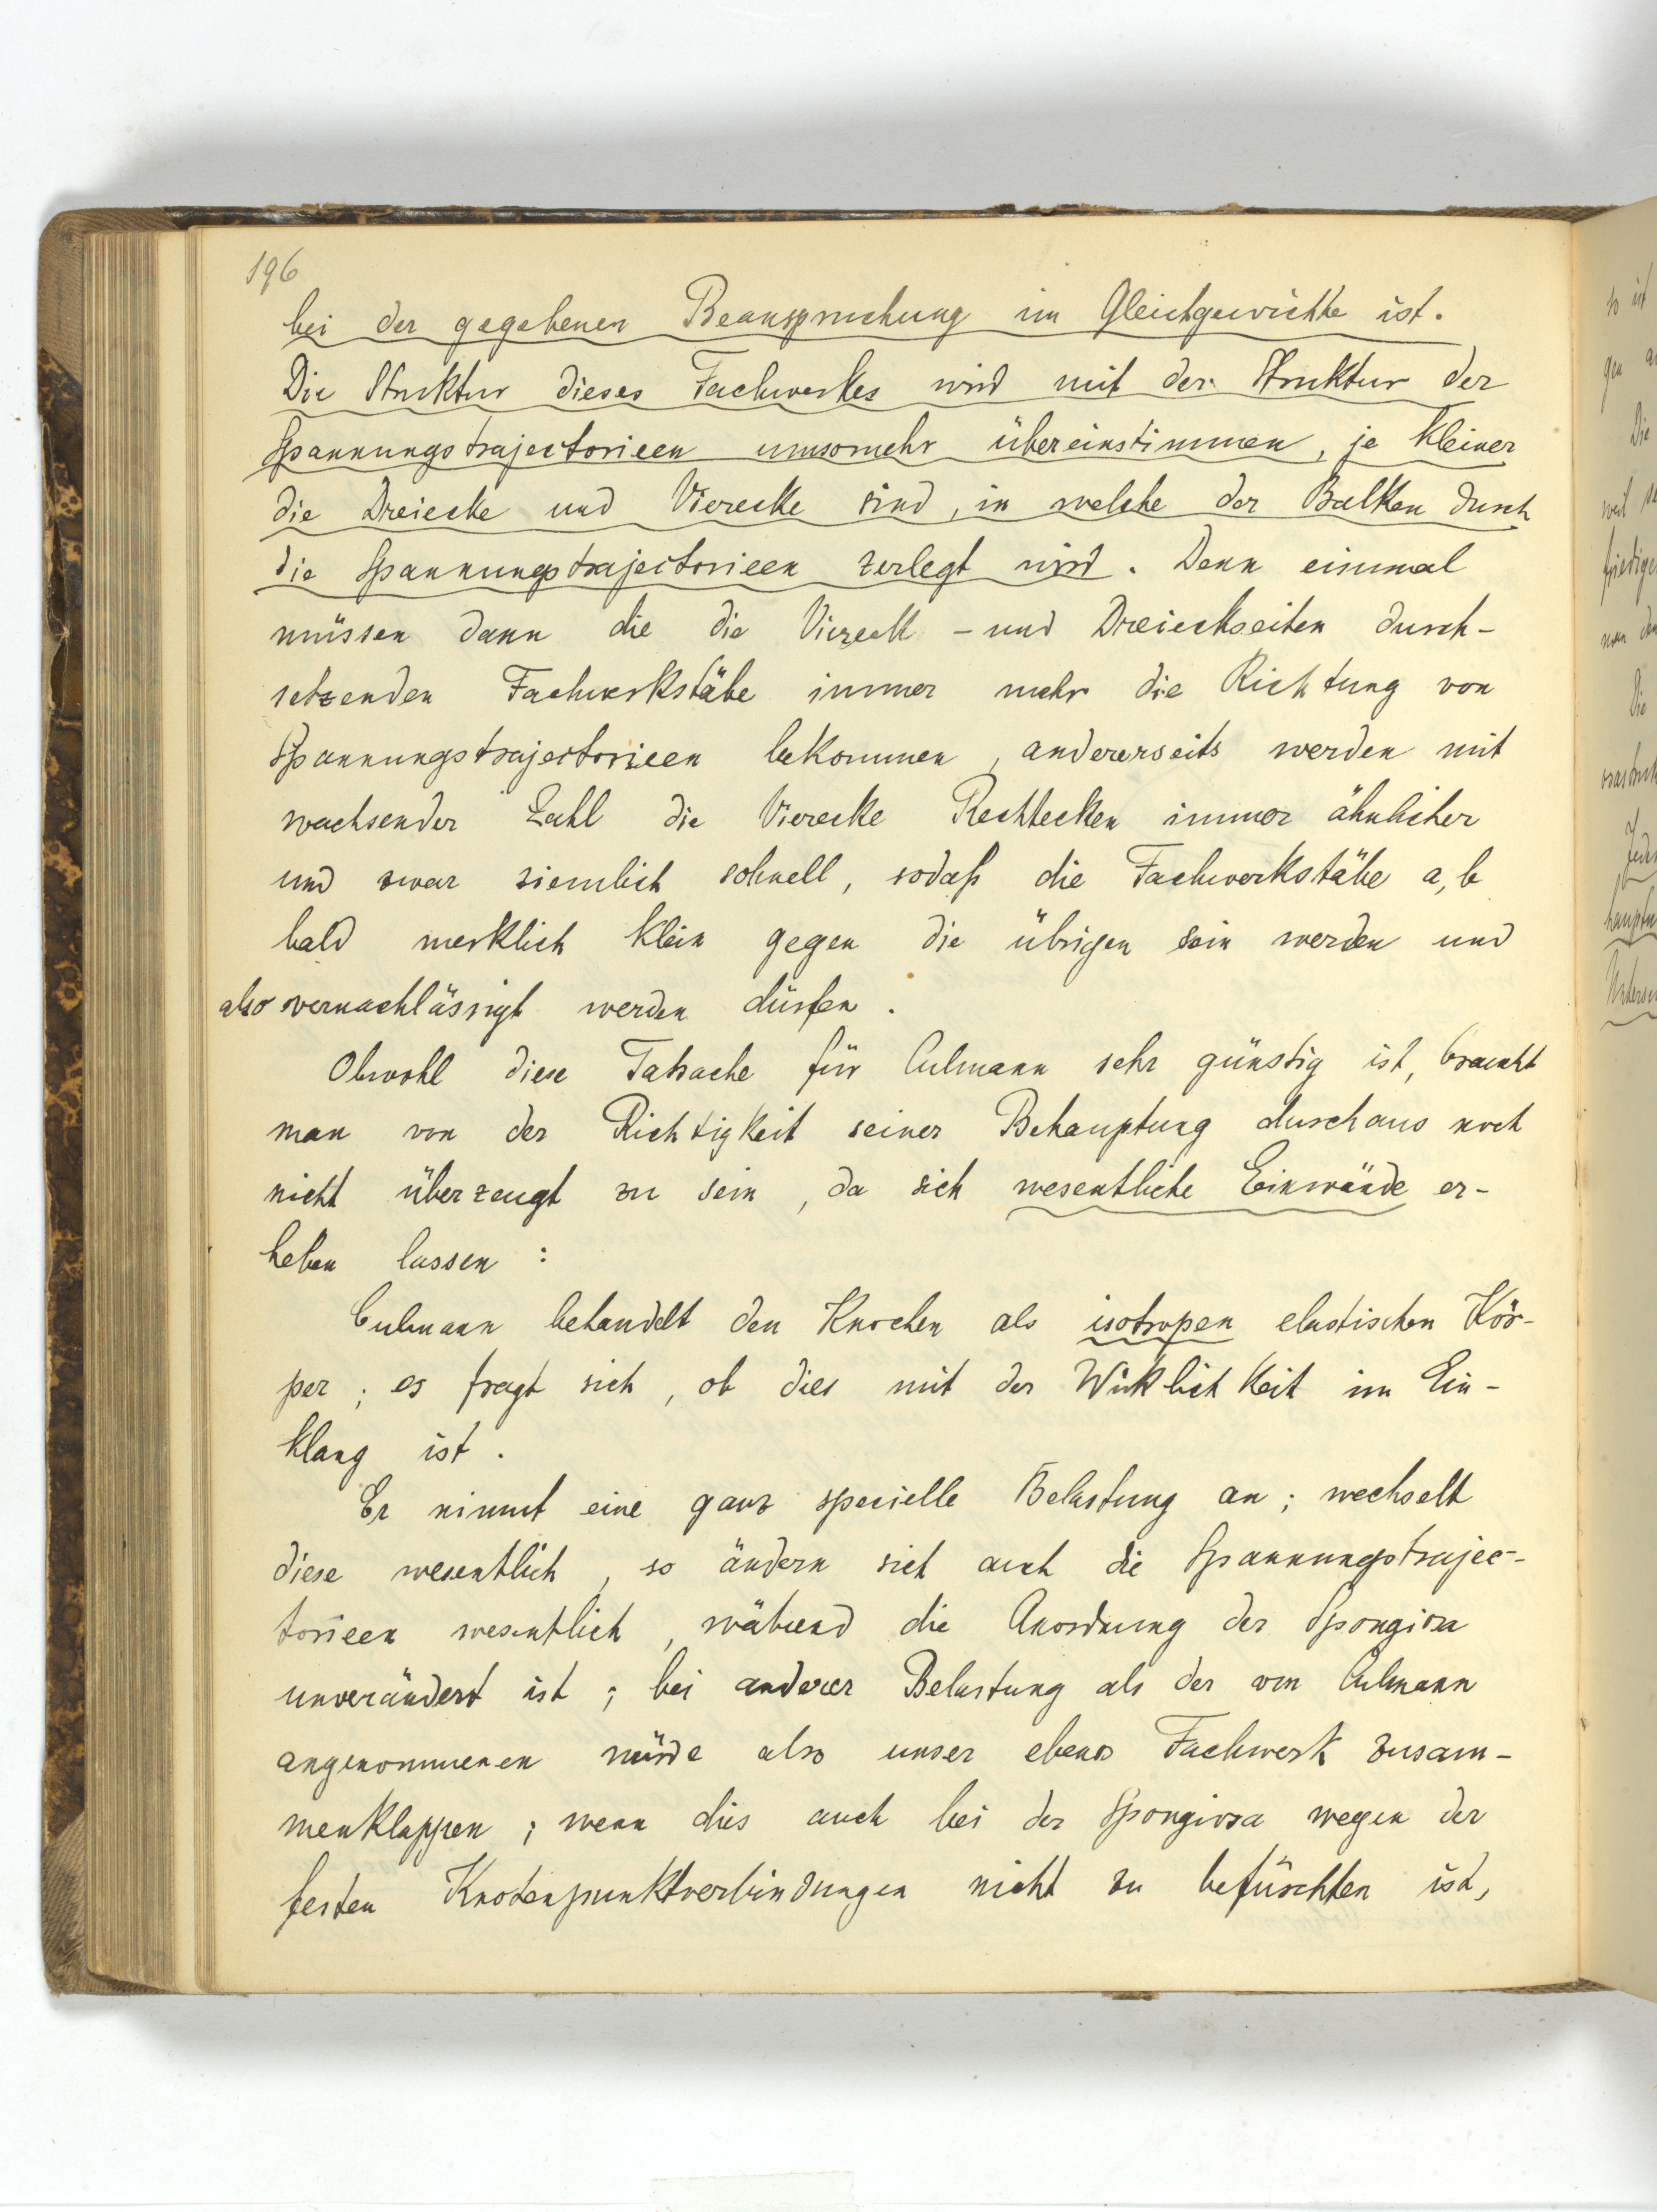 196
bei der gegebenen Beanspruchung im Gleichgewichte ist.
Die Struktur dieses Fachwerkes wird mit der Struktur der
Spannungstrajectorieen umsomehr übereinstimmen, je kleiner
die Dreiecke und Vierecke sind, in welche der Balken durch
die Spannungstrajectorieen zerlegt wird. Denn einmal
müssen dann die die Viereck- und Dreieckseiten durch-
setzenden Fachwerkstäbe immer mehr die Richtung von
Spannungstrajectorieen bekommen, andererseits werden mit
wachsender Zahl die Vierecke Rechtecken immer ähnlicher
und zwar ziemlich schnell, sodaß die Fachwerkstäbe a, b
bald merklich klein gegen die übrigen sein werden und
also vernachlässigt werden dürfen.
Obwohl diese Tatsache für Culmann sehr günstig ist, braucht
man von der Richtigkeit seiner Behauptung durchaus noch
nicht überzeugt zu sein, da sich wesentliche Einwände er-
heben lassen:
Culmann behandelt den Knochen als isotropen elastischen Kör-
per; es fragt sich, ob dies mit der Wirklichkeit im Ein-
klang ist.
Er nimmt eine ganz specielle Belastung an; wechselt
diese wesentlich, so ändern sich auch die Spannungstrajec-
torieen wesentlich, während die Anordnung der Spongiosa
unverändert ist; bei anderer Belastung als der von Culmann
angenommenen würde also unser ebenes Fachwerk zusam-
menklappen; wenn dies auch bei der Spongiosa wegen der
festen Knotenpunktverbindungen nicht zu befürchten ist,
so ist
gen
Die
weil
man
Die
Jede